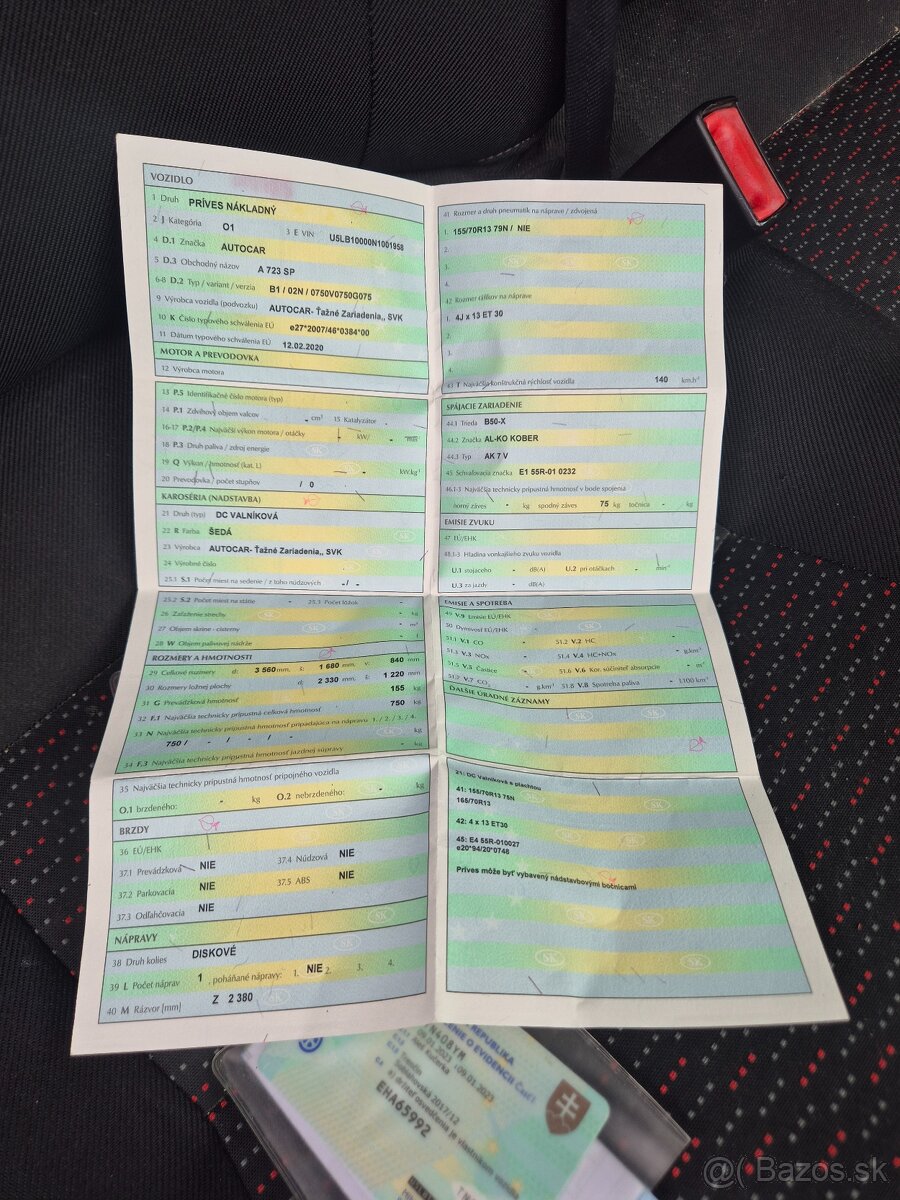 VOZIDLO
1 Druh PRÍVES NÁKLADNÝ
2 J Kategória O1 3 E VIN U5LB10000N1001958
4 D.1 Značka AUTOCAR
5 D.3 Obchodný názov A 723 SP
6-8 D.2 Typ / variant / verzia B1 / 02N / 0750V0750G075
9 Výrobca vozidla (podvozku) AUTOCAR- Ťažné Zariadenia,, SVK
10 K Číslo typového schválenia EÚ e27*2007/46*0384*00
11 Dátum typového schválenia EÚ 12.02.2020
MOTOR A PREVODOVKA
12 Výrobca motora
13 P.5 Identifikačné číslo motora (typ)
14 P.1 Zdvihový objem valcov - cm³ 15 Katalyzátor -
16-17 P.2/P.4 Najväčší výkon motora / otáčky - kW/ - min
18 P.3 Druh paliva / zdroj energie
19 Q Výkon / hmotnosť (kat. L) - kW/kg
20 Prevodovka / počet stupňov / 0
KAROSÉRIA (NADSTAVBA)
21 Druh (typ) DC VALNÍKOVÁ
22 R Farba ŠEDÁ
23 Výrobca AUTOCAR- Ťažné Zariadenia,, SVK
24 Výrobné číslo
25.1 S.1 Počet miest na sedenie / z toho núdzových - / -
25.2 S.2 Počet miest na státie - 25.3 Počet lôžok -
26 Zaťaženie strechy - kg
27 Objem skrine - cisterny - m³
28 W Objem palivovej nádrže - l
ROZMERY A HMOTNOSTI
29 Celkové rozmery d: 3 560 mm, š: 1 680 mm, v: 840 mm
30 Rozmery ložnej plochy d: 2 330 mm, š: 1 220 mm
31 G Prevádzková hmotnosť 155 kg
32 F.1 Najväčšia technicky prípustná celková hmotnosť 750 kg
33 N Najväčšia technicky prípustná hmotnosť pripadajúca na nápravu 1. / 2. / 3. / 4.
750 / - / - / -
34 F.3 Najväčšia technicky prípustná hmotnosť jazdnej súpravy - kg
35 Najväčšia technicky prípustná hmotnosť prípojného vozidla
O.1 brzdeného: - kg O.2 nebrzdeného: - kg
BRZDY
36 EÚ/EHK
37.1 Prevádzková NIE 37.4 Núdzová NIE
37.2 Parkovacia NIE 37.5 ABS NIE
37.3 Odľahčovacia NIE
NÁPRAVY
38 Druh kolies DISKOVÉ
39 L Počet náprav 1 poháňané nápravy: 1. NIE 2. 3. 4.
40 M Rázvor [mm] Z 2 380
41 Rozmer a druh pneumatík na náprave / zdvojená
1. 155/70R13 79N / NIE
2.
3.
4.
42 Rozmer ráfikov na náprave
1. 4J x 13 ET 30
2.
3.
4.
43 T Najväčšia konštrukčná rýchlosť vozidla 140 km.h⁻¹
SPÁJACIE ZARIADENIE
44.1 Trieda B50-X
44.2 Značka AL-KO KOBER
44.3 Typ AK 7 V
45 Schvaľovacia značka E1 55R-01 0232
46.1-3 Najväčšia technicky prípustná hmotnosť v bode spojenia
horný záves - kg spodný záves 75 kg točnica - kg
EMISIE ZVUKU
47 EÚ/EHK
48.1-3 Hladina vonkajšieho zvuku vozidla
U.1 stojaceho - dB(A) U.2 pri otáčkach - min⁻¹
U.3 za jazdy - dB(A)
EMISIE A SPOTREBA
49 V.9 Emisie EÚ/EHK
50 Dymivosť EÚ/EHK
51.1 V.1 CO - 51.2 V.2 HC -
51.3 V.3 NOx - 51.4 V.4 HC+NOx - g.km⁻¹
51.5 V.5 Častice - 51.6 V.6 Kor. súčiniteľ absorpcie - m⁻¹
51.7 V.7 CO₂ - g.km⁻¹ 51.8 V.8 Spotreba paliva - l.100 km⁻¹
ĎALŠIE ÚRADNÉ ZÁZNAMY
21: DC Valníková s plachtou
41: 155/70R13 75N
165/70R13
42: 4 x 13 ET30
45: E4 55R-010027
e20*94/20*0748
Príves môže byť vybavený nadstavbovými bočnicami
REPUBLIKA
O EVIDENCII ČASŤ I
09.01.2023
09.01.2023
Trenčín
2017/12
držiteľ osvedčenia je vlastníkom vozidla
EHA65992
@( Bazos.sk